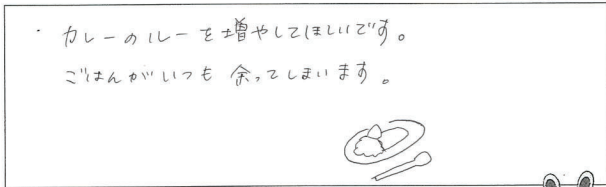 ・カレーのルーを増やしてほしいです。
ごはんがいつも余ってしまいます。